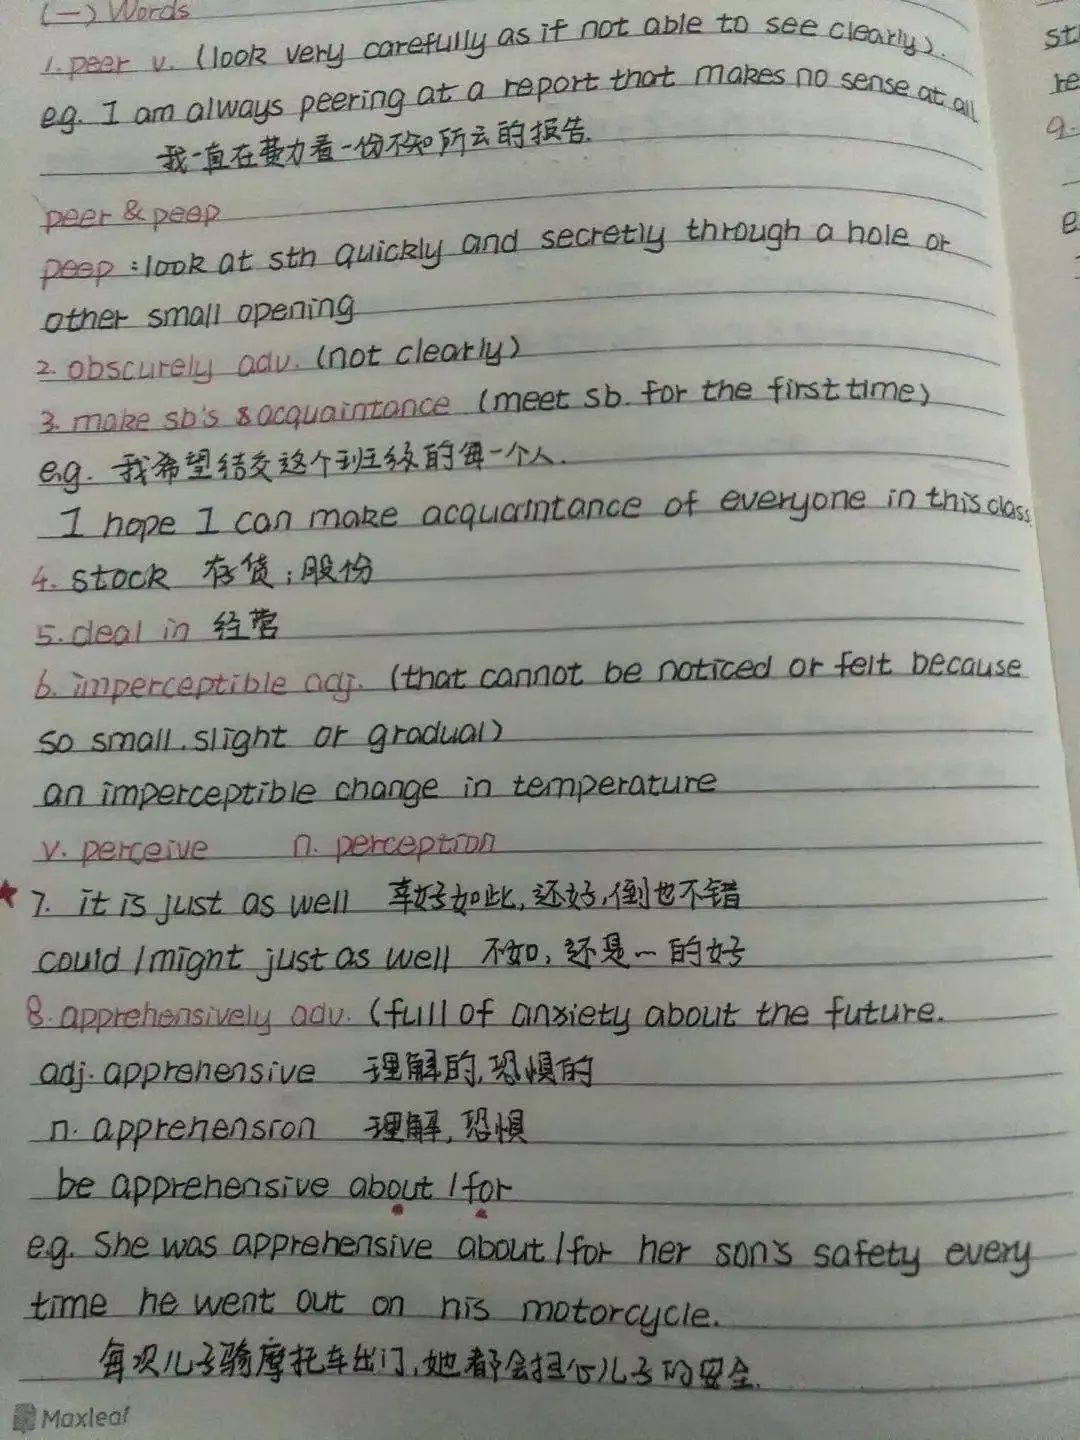 (一) Words
1. peer v. (look very carefully as if not able to see clearly).
eg. I am always peering at a report that makes no sense at all.
我一直在费力看一份不知所云的报告.
peer & peep
peep : look at sth quickly and secretly through a hole or
other small opening
2. obscurely adv. (not clearly)
3. make sb's acquaintance (meet sb. for the first time)
e.g. 我希望结交这个班级的每一个人.
I hope I can make acquaintance of everyone in this class.
4. stock 存货;股份
5. deal in 经营
6. imperceptible adj. (that cannot be noticed or felt because
so small. slight or gradual)
an imperceptible change in temperature
v. perceive n. perception
★ 7. it is just as well 幸好如此,还好,倒也不错
could / might just as well 不如, 还是一的好
8. apprehensively adv. (full of anxiety about the future.
adj. apprehensive 理解的,恐惧的
n. apprehension 理解,恐惧
be apprehensive about / for
e.g. She was apprehensive about / for her son's safety every
time he went out on his motorcycle.
每次儿子骑摩托车出门,她都会担心儿子的安全.
Maxleaf
st
re
9.
e